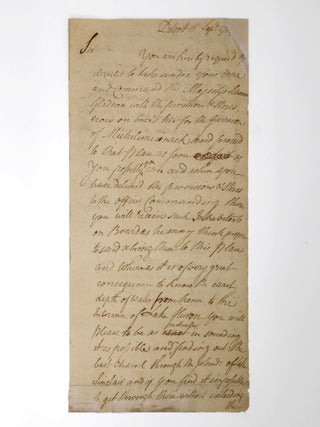 Detroit Sept
Sir
You are hereby required &
desired to take under your care
and Command the Majestys
Gladwin with the provisions & Stores
now on board her for the Garrison
of Michilimackinack and proceed
to that place as soon as
You possibly can and when you
have deliver'd the provisions & Stores
to the officer Commanding there
you will receive such Inhabitants
on Board as he may think proper
to send & bring them to this place
and Whereas it is of very great
consequence to know the exact
depth of water from hence to the
Entrance of Lake Huron you will
please to be as industrious in sounding
it as possible and finding out the
best Channel through the Islands of Lake
Sinclair and if you find it impossible
to get through there without unloading
the